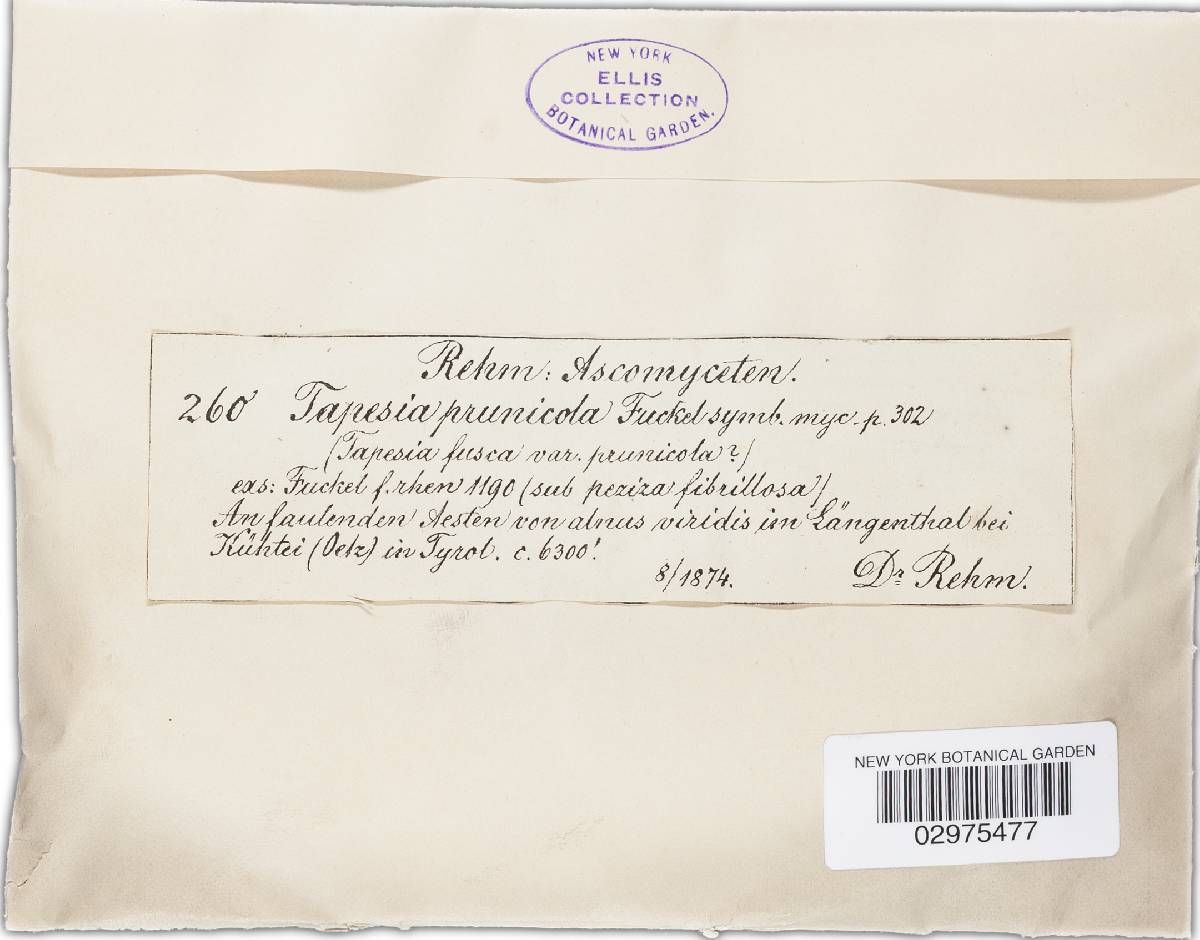 NEW YORK
ELLIS
COLLECTION
BOTANICAL GARDEN.
Rehm: Ascomyceten.
260 Tapesia prunicola Fuckel symb. myc. p. 302
(Tapesia fusca var. prunicola?)
exs: Fuckel f. rhen 1190 (sub peziza fibrillosa)
An faulenden Aesten von alnus viridis im Längenthal bei
Kühtei (Oetz) in Tyrol. c. 6300'.
8/1874. Dr Rehm.
NEW YORK BOTANICAL GARDEN
02975477